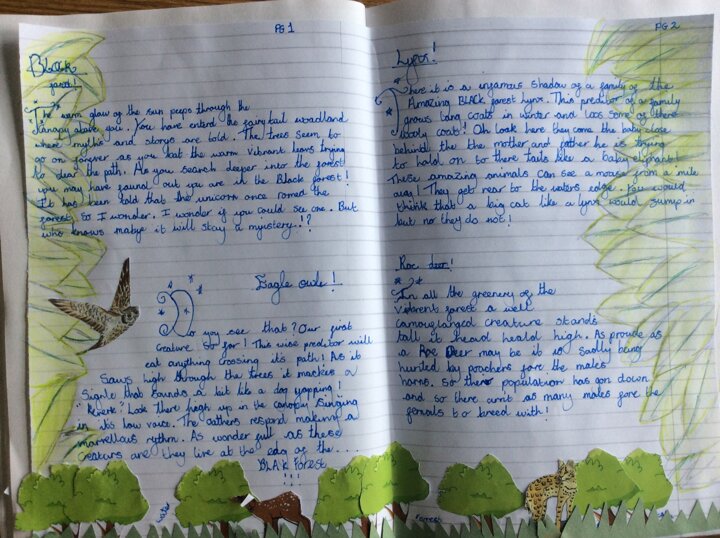 PG 1
Black
forest!
The warm glow of the sun peeps through the
kanapy above you. You have enterd the fairytail woadland
where myths and storys are told. The tress seem to
go on forever as you bat the warm vibrant leaves trying
to clear the path. As you search deeper into the forest
you may have found out you are in the Black forest!
It has been told that the unicorn once romed the
forest so I wonder. I wonder if you could see one. But
who knows mabye it will stay a mystery..?
Eagle owls!
Do you see that? Our first
creature so far! This wise preditor will
eat anything crossing it's path! As it
Saws high through the trees it mackes a
Signle that sounds a bit like a dog yapping!
Look there high up in the canopy singing
in it's low voice. The others respond making a
marvellous rythm. As wonder full as these
creaturs are they live at the edg of the....
BLAK forest
!!!
PG 2
Lynx!
There it is a infamous shadow of a family of the
Amazing BLACk forest Lynx. This preditor of a family
grows long coats in winter and loos some of there
wooly coats! Oh look here they come the baby close
behind the the mother and father he is trying
to hold on to there tails like a baby elephant!
These amazing animals can see a mouse from a mile
away! They get near to the waters edge. You would
think that a big cat like a lynx would jump in
but no they do not!
Roe deer!
In all the greenery of the
a well
camouflanged creature stands
tall it heard heald high. As proude as
a Roe Deer may be it is sadly being
hunted by poachers fore the males
horns. so there population has gon down
and so there arnt as many males fore the
femals to breed with!